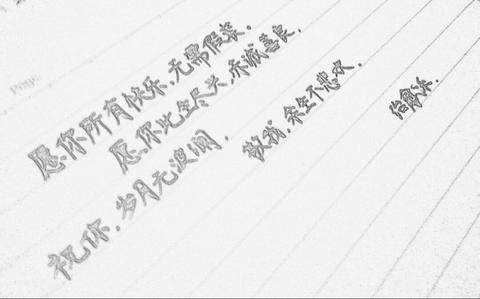 Page:
愿你所有快乐,无需假装。
愿你此生尽兴,赤诚善良,
祝你,岁月无波澜,
敬我,余生不悲欢.